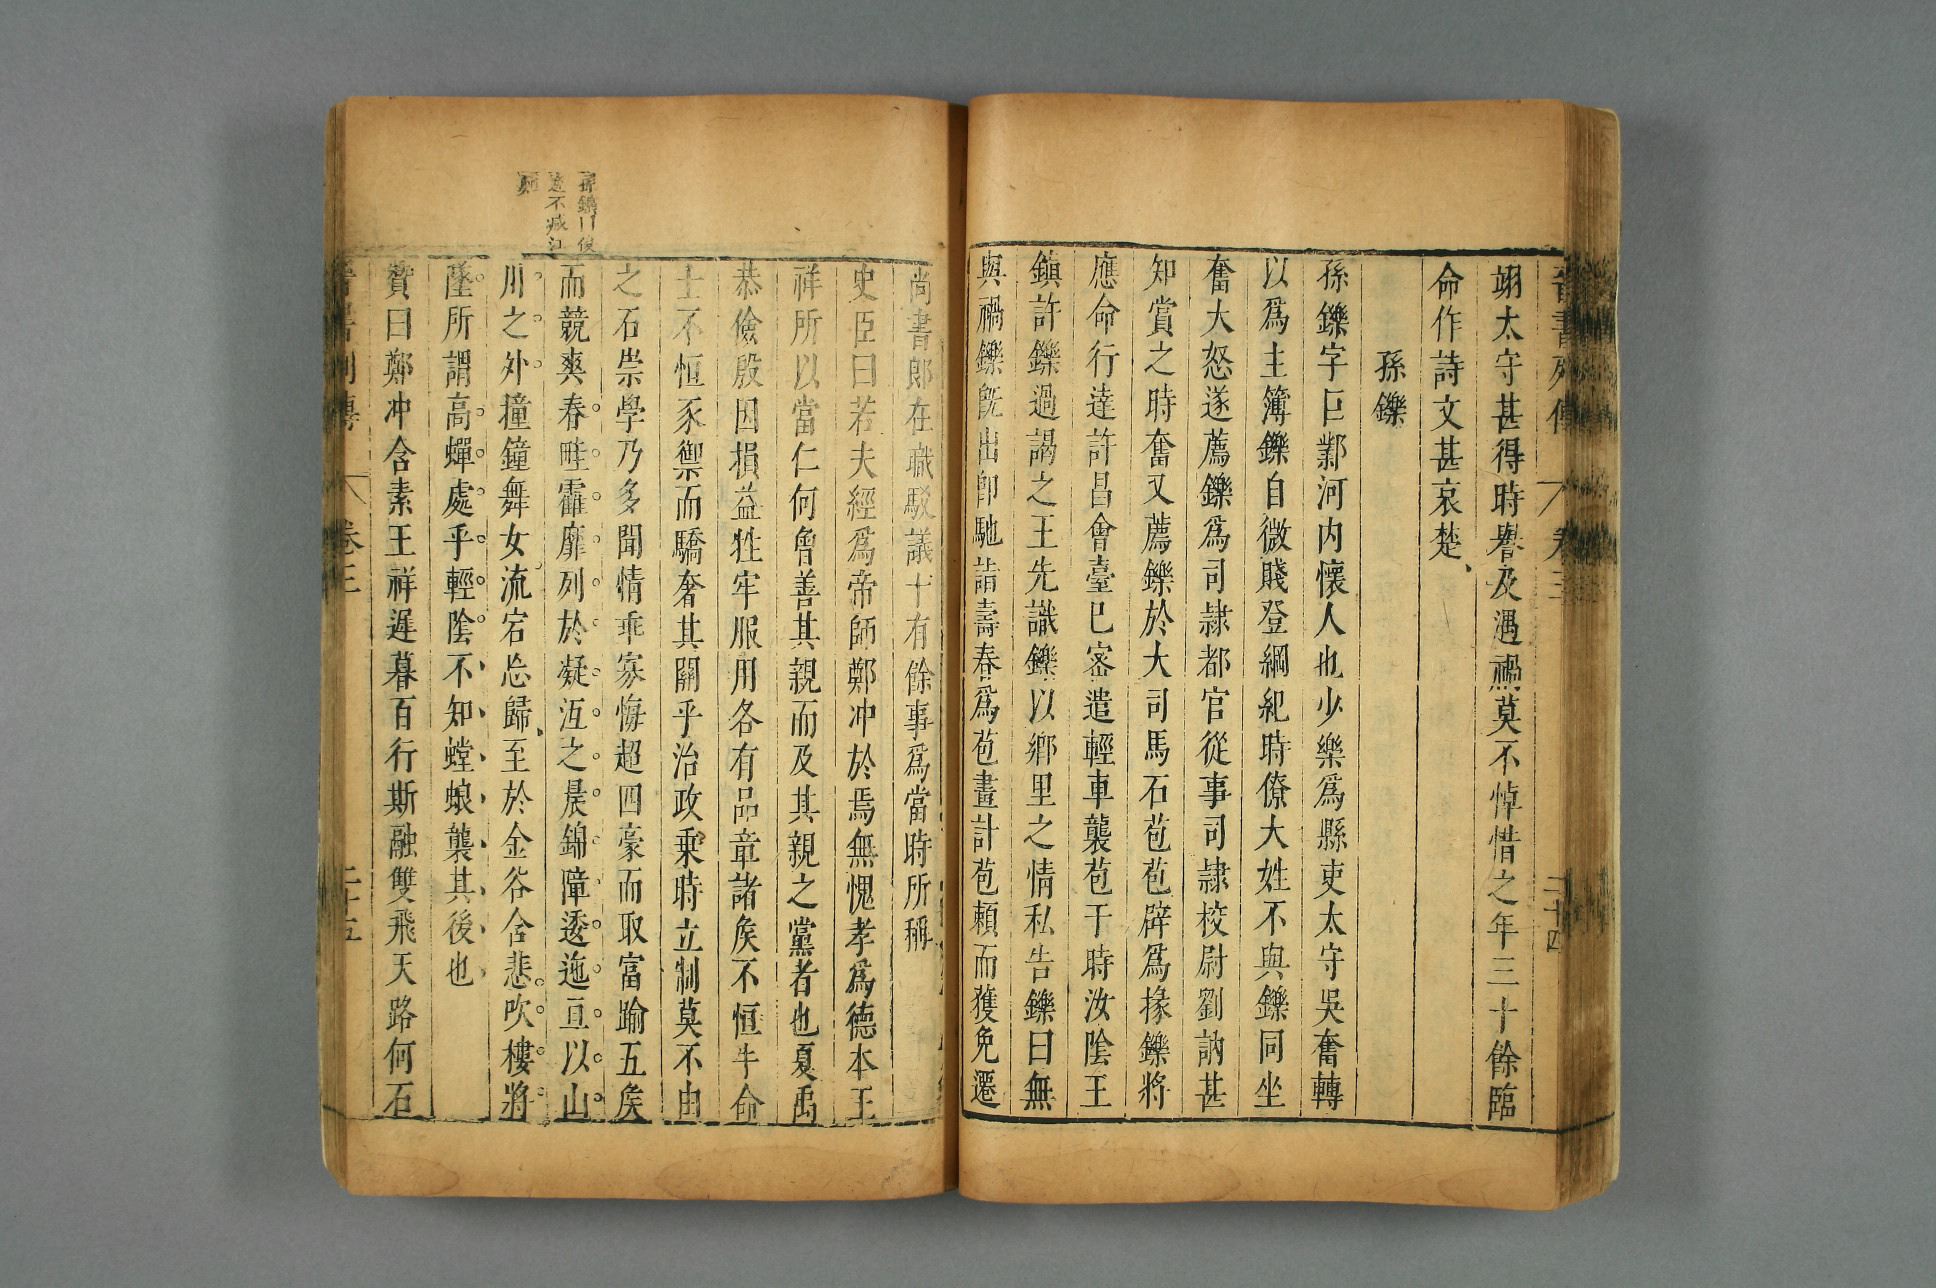 晉書列傳 卷三 二十四
翊太守甚得時譽及遇禍莫不悼惜之年三十餘臨
命作詩文甚哀楚
孫鑠
孫鑠字巨鄴河内懷人也少樂爲縣吏太守吳奮轉
以爲主簿鑠自微賤登綱紀時僚大姓不與鑠同坐
奮大怒遂薦鑠爲司隷都官從事司隷校尉劉訥甚
知賞之時奮又薦鑠於大司馬石苞苞辟爲掾鑠將
應命行達許昌會臺已密遣輕車襲苞于時汝陰王
鎮許鑠過謁之王先識鑠以鄉里之情私告鑠曰無
與禍鑠旣出卽馳詣壽春爲苞畫計苞賴而獲免遷
尚書郎在職駁議十有餘事爲當時所稱
史臣曰若夫經爲帝師鄭冲於焉無愧孝爲德本王
祥所以當仁何曾善其親而及其親之黨者也夏禹
恭儉殷因損益牲牢服用各有品章諸矦不恒牛命
士不恒豕禦而驕奢其關乎治政乗時立制莫不由
之石崇學乃多聞情乖寡悔超四豪而取富踰五矦
而競爽春畦靃靡列於凝沍之晨錦障逶迤亘以山
川之外撞鐘舞女流宕忘歸至於金谷含悲吹樓將
墜所謂高蟬處乎輕陰不知螳蜋襲其後也
贊曰鄭冲含素王祥遲暮百行斯融雙飛天路何石
晉書列傳 卷三 二十五